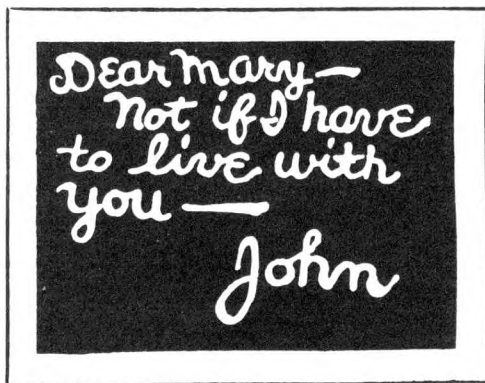 Dear Mary—
Not if I have
to live with
you —
John